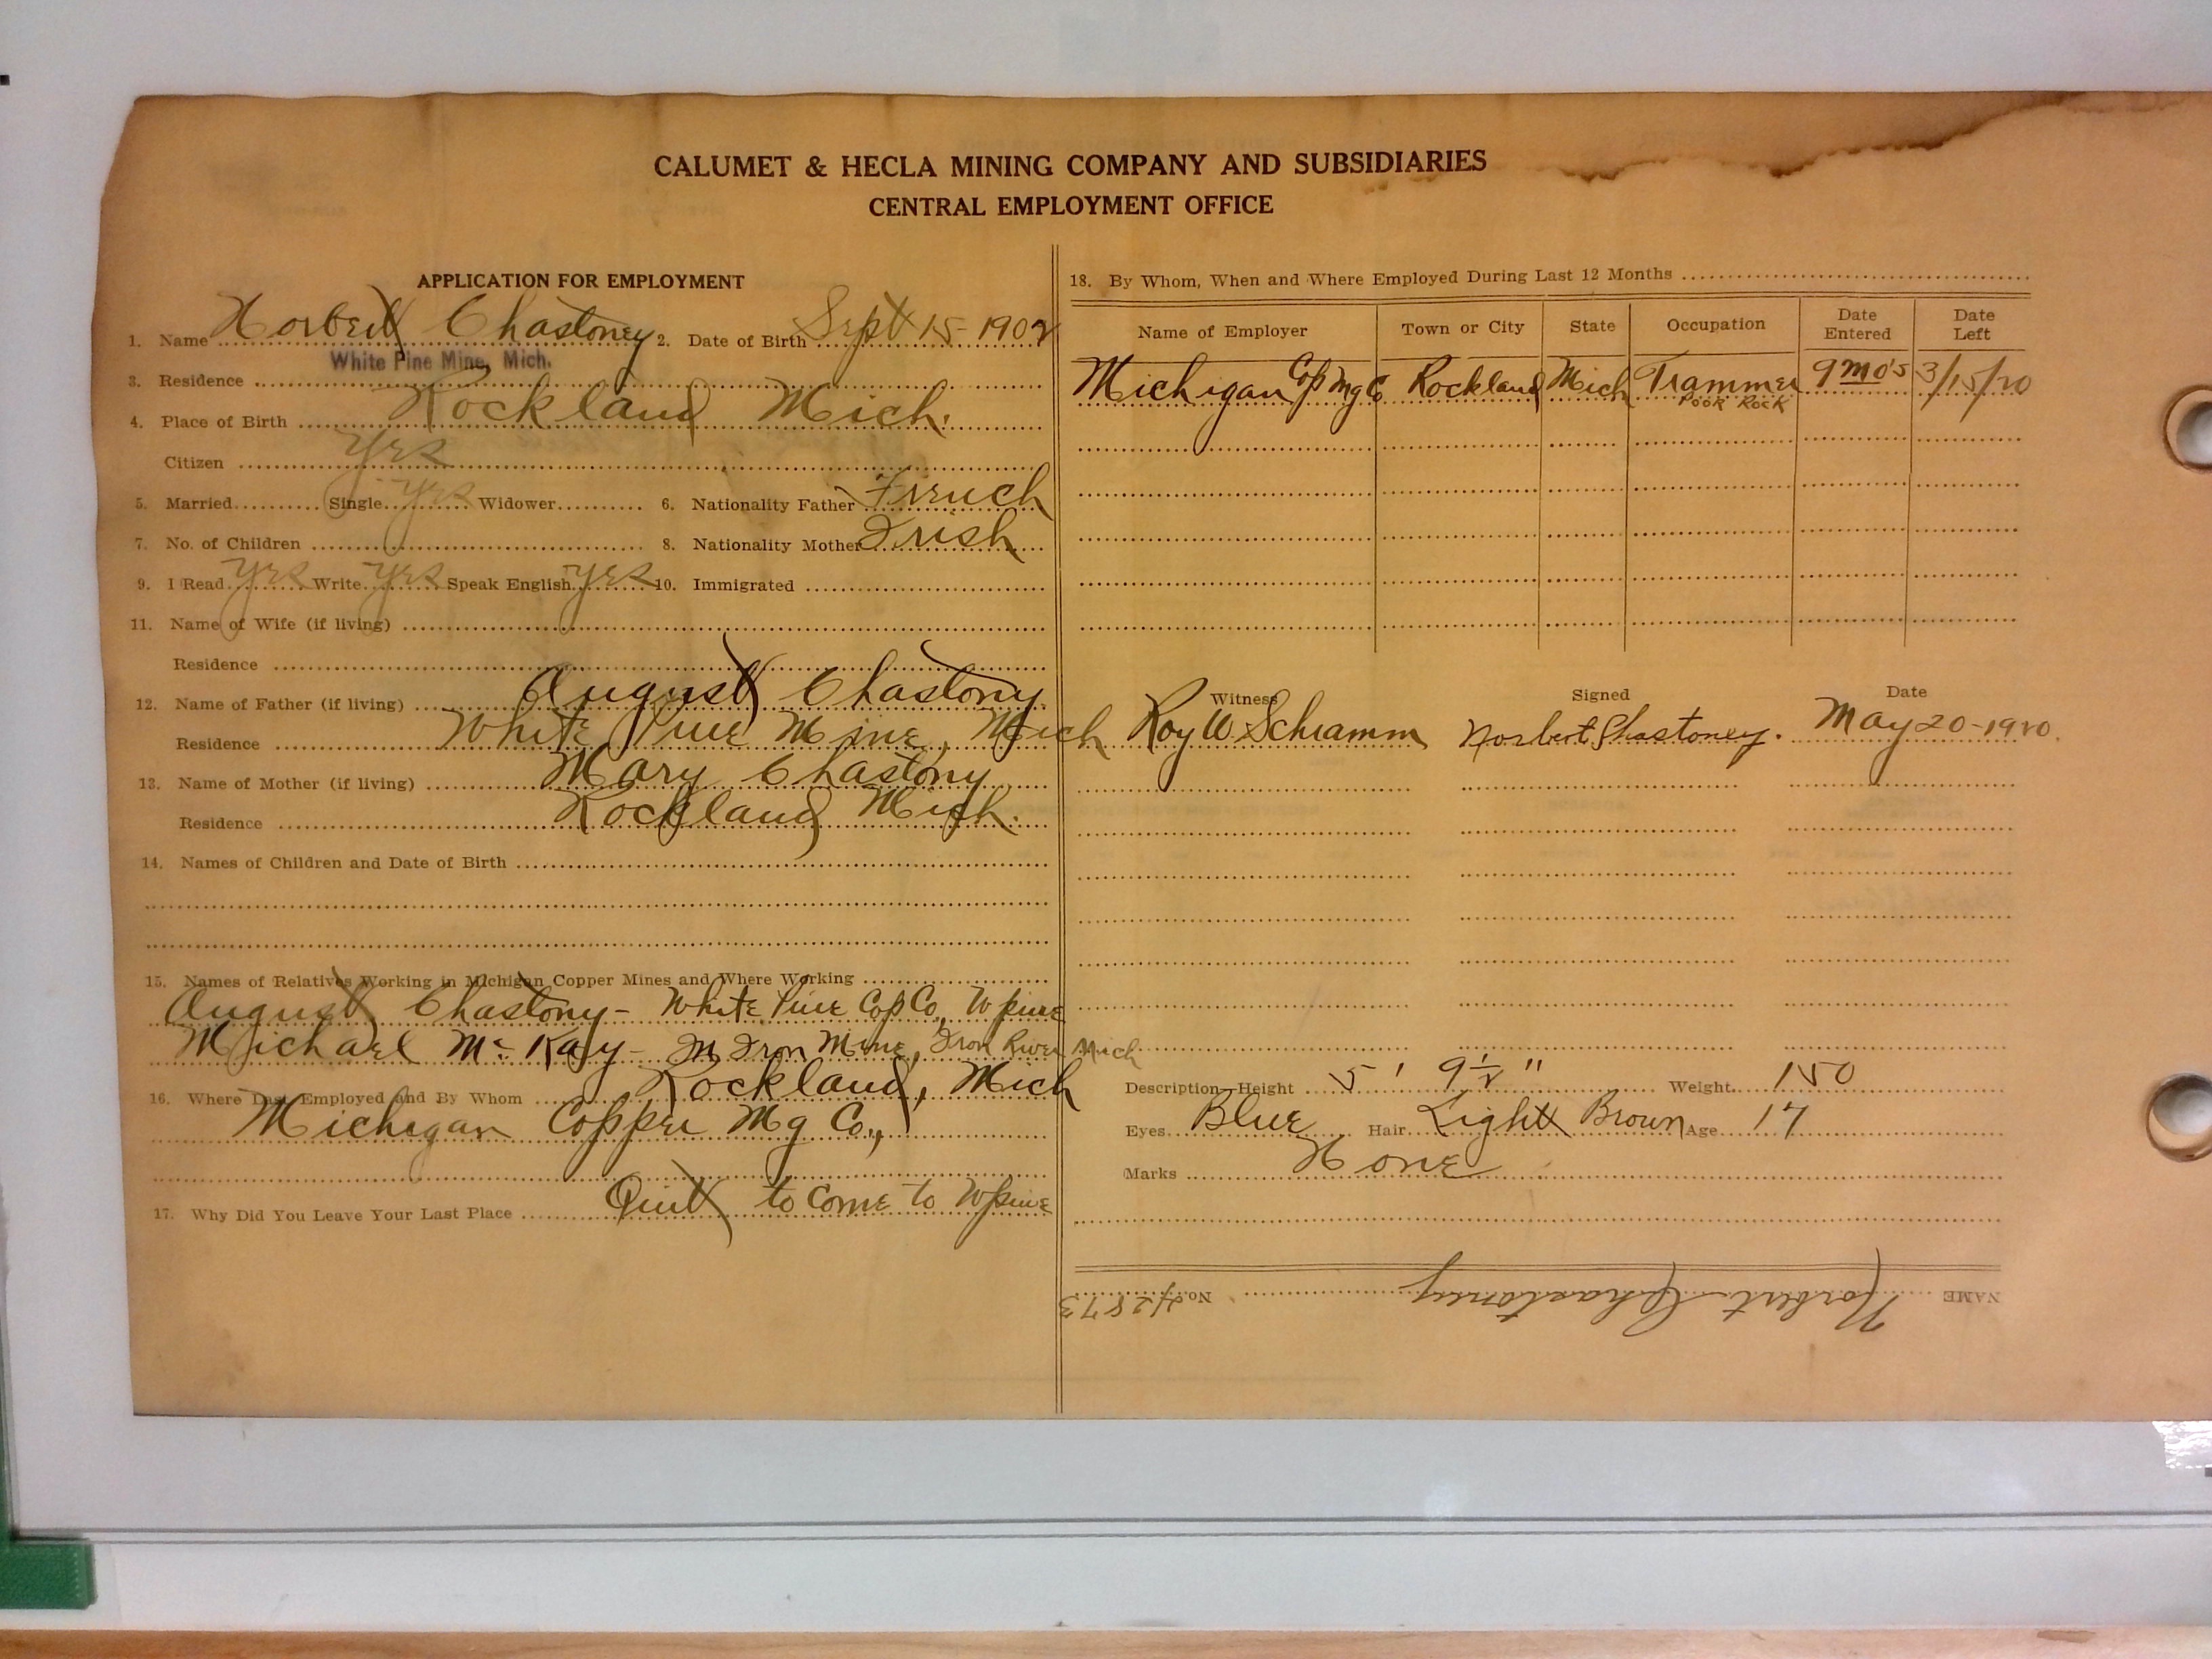 CALUMET & HECLA MINING COMPANY AND SUBSIDIARIES
CENTRAL EMPLOYMENT OFFICE
APPLICATION FOR EMPLOYMENT
1. Name Norbert Chastoney 2. Date of Birth Sept 15-1902
White Pine Mine, Mich.
3. Residence
4. Place of Birth Rockland Mich.
Citizen Yes
5. Married Single yes Widower 6. Nationality Father French
7. No. of Children 8. Nationality Mother Irish
9. I Read yes Write yes Speak English yes 10. Immigrated
11. Name of Wife (if living)
Residence
12. Name of Father (if living) August Chastony
Residence White Pine Mine, Mich
13. Name of Mother (if living) Mary Chastony
Residence Rockland Mich.
14. Names of Children and Date of Birth
15. Names of Relatives Working in Michigan Copper Mines and Where Working
August Chastony - White Pine Cop Co, W pine
Michael Mc Kay - In Iron Mine, Iron River Mich
16. Where Last Employed and By Whom Rockland, Mich
Michigan Copper Mg Co.,
17. Why Did You Leave Your Last Place Quit to come to W pine
18. By Whom, When and Where Employed During Last 12 Months
Name of Employer Town or City State Occupation Date Entered Date Left
Michigan Cop Mg C Rockland Mich Trammer 9 mo's 3/15/20
Poor Rock
Witness Signed Date
Roy W. Schramm Norbert Chastoney. May 20-1920.
Description—Height 5' 9½" Weight 150
Eyes Blue Hair Light Brown Age 17
Marks None
NAME Norbert Chastoney No. 42873